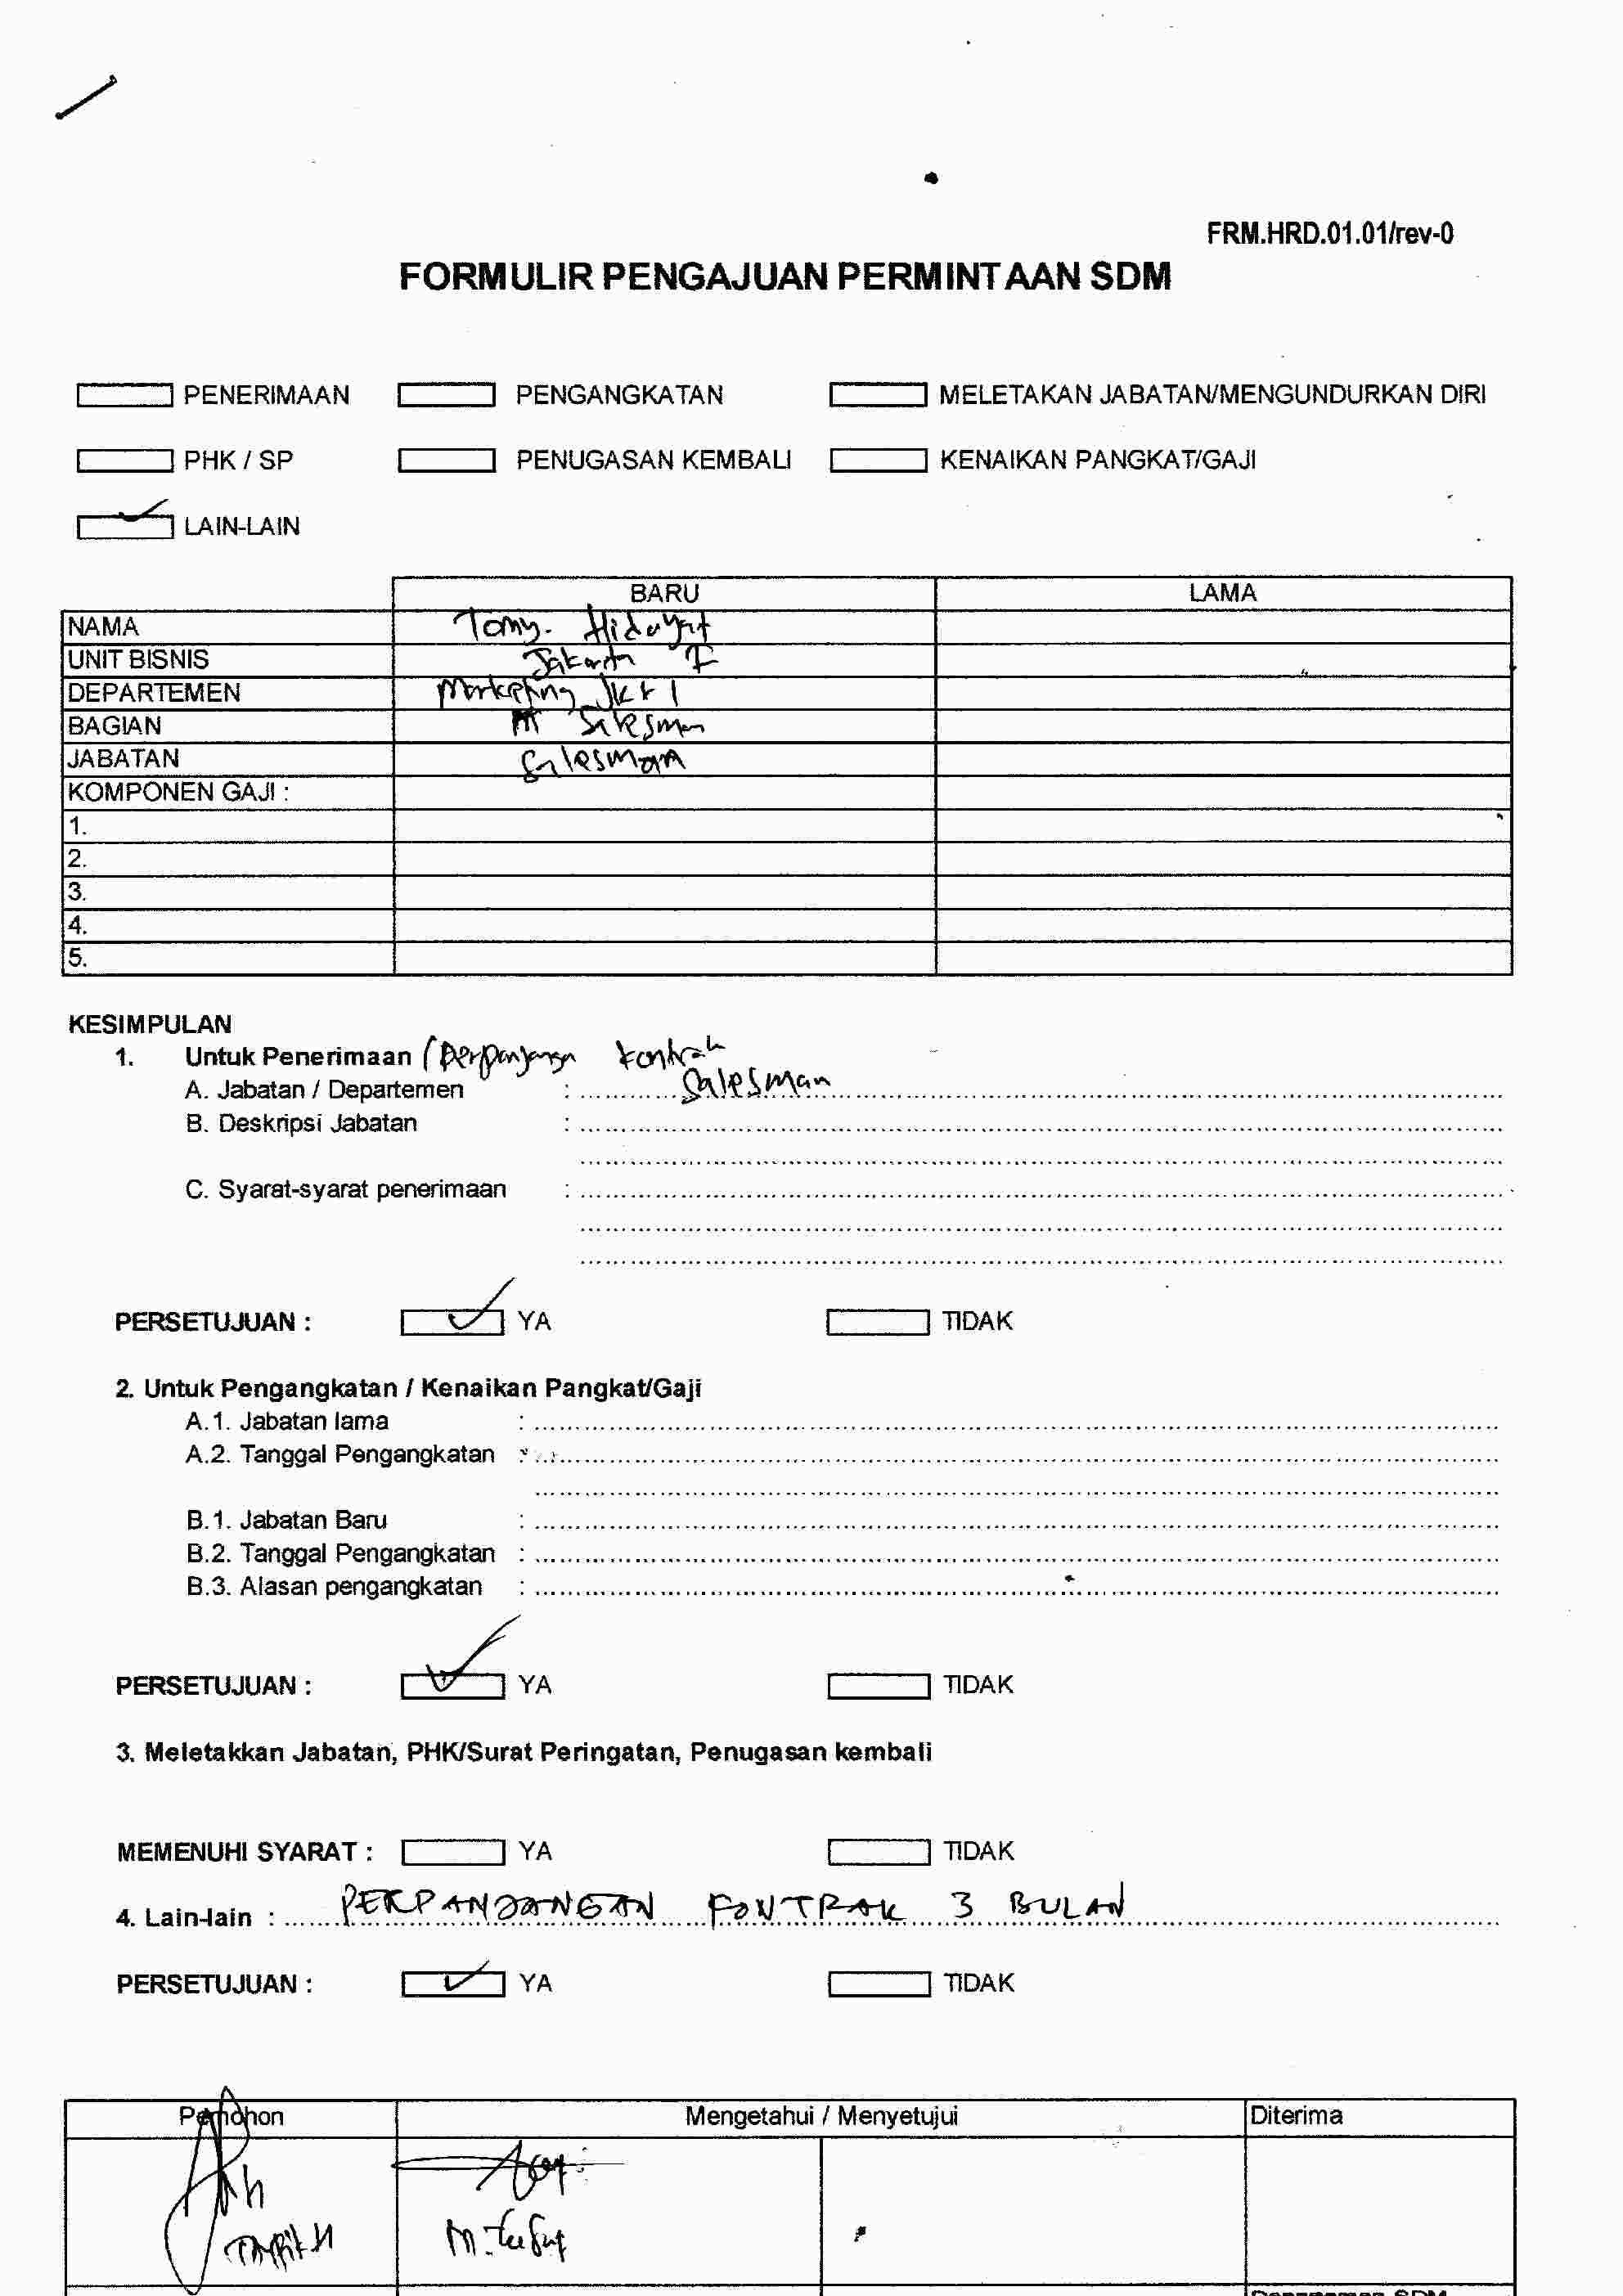 FRM.HRD.01.01/rev-0
FORMULIR PENGAJUAN PERMINTAAN SDM
PENERIMAAN PENGANGKATAN MELETAKAN JABATAN/MENGUNDURKAN DIRI
PHK / SP PENUGASAN KEMBALI KENAIKAN PANGKAT/GAJI
LAIN-LAIN
BARU LAMA
NAMA Tomy. Hidayat
UNIT BISNIS Jakarta I
DEPARTEMEN Marketing Jkt 1
BAGIAN Salesman
JABATAN Salesman
KOMPONEN GAJI :
1.
2.
3.
4.
5.
KESIMPULAN
1. Untuk Penerimaan / Perpanjangan kontrak
A. Jabatan / Departemen : Salesman
B. Deskripsi Jabatan :
C. Syarat-syarat penerimaan :
PERSETUJUAN : YA TIDAK
2. Untuk Pengangkatan / Kenaikan Pangkat/Gaji
A.1. Jabatan lama :
A.2. Tanggal Pengangkatan :
B.1. Jabatan Baru :
B.2. Tanggal Pengangkatan :
B.3. Alasan pengangkatan :
PERSETUJUAN : YA TIDAK
3. Meletakkan Jabatan, PHK/Surat Peringatan, Penugasan kembali
MEMENUHI SYARAT : YA TIDAK
4. Lain-lain : PERPANJANGAN KONTRAK 3 BULAN
PERSETUJUAN : YA TIDAK
Pemohon Mengetahui / Menyetujui Diterima